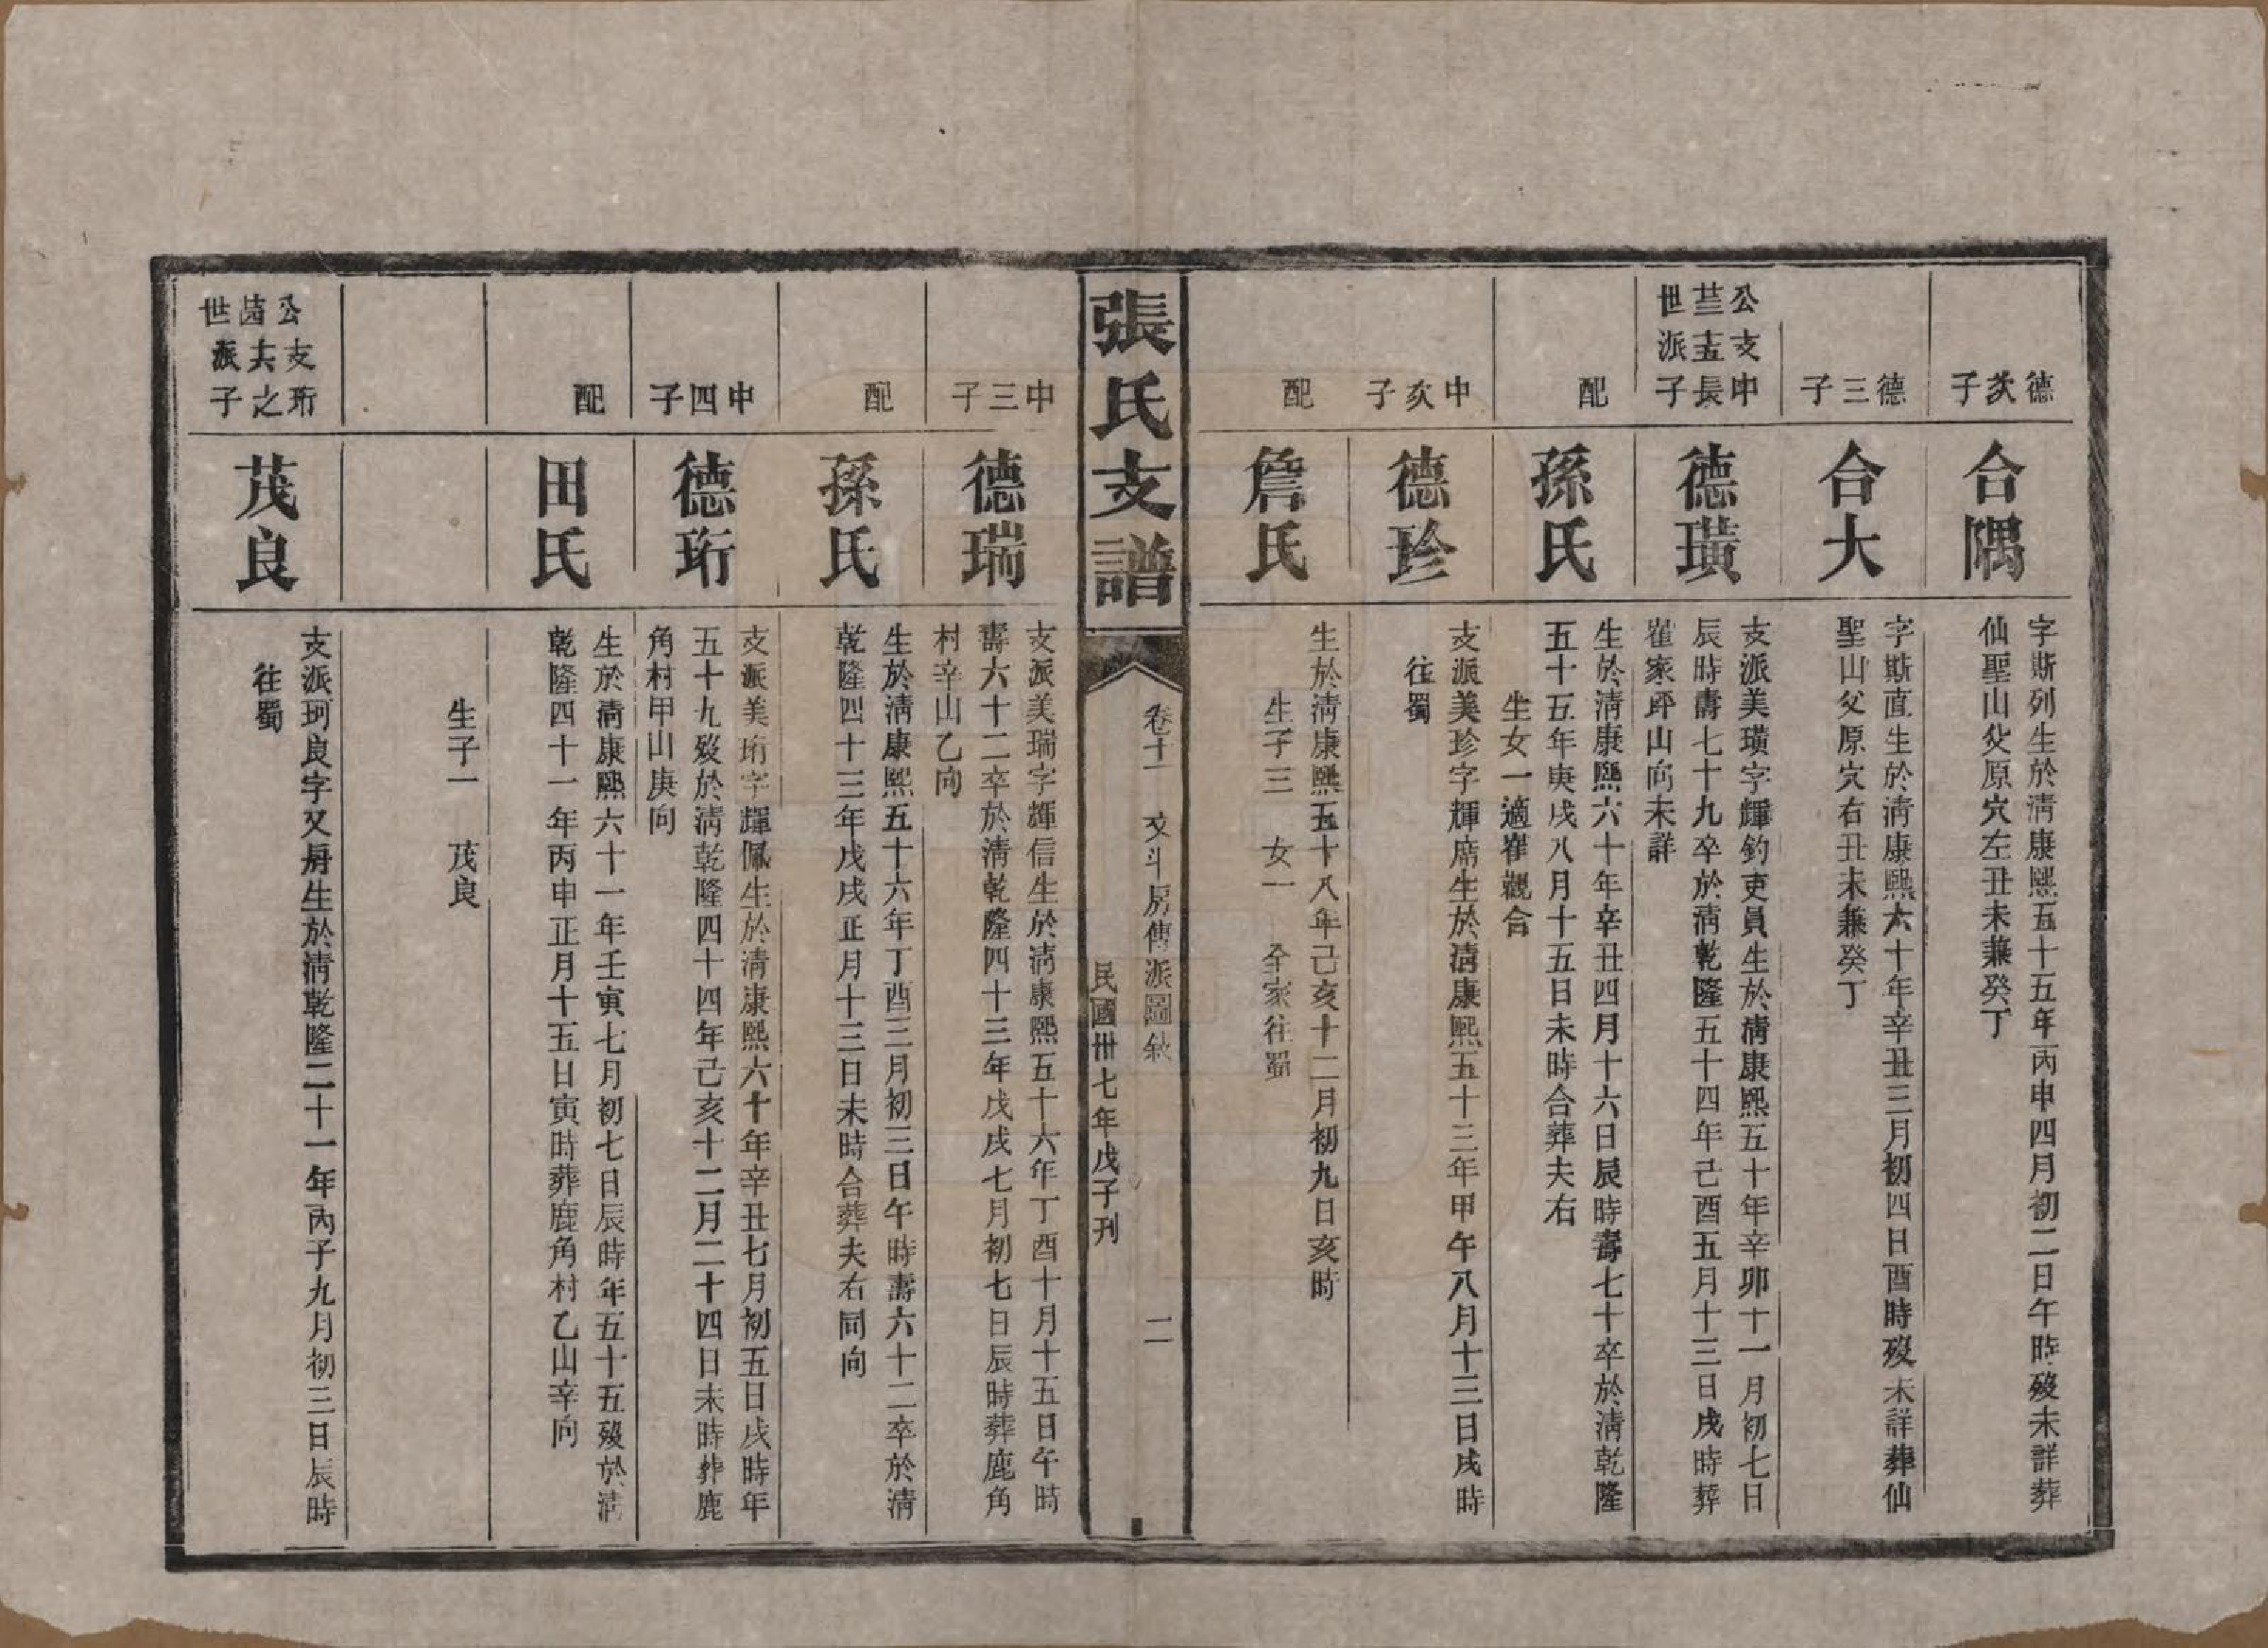 德次子
合隅
字斯列生於清康熙五十五年丙申四月初二日午時歿未詳葬
仙聖山父原穴左丑未兼癸丁
德三子
合大
字斯直生於清康熙六十年辛丑三月初四日酉時歿未詳葬仙
聖山父原穴右丑未兼癸丁
公支申
長
世派子
德璜
支派美璜字輝釣吏員生於清康熙五十年辛卯十一月初七日
辰時壽七十九卒於清乾隆五十四年己酉五月十三日戌時葬
崔家坪山向未詳
配
孫氏
生於清康熙六十年辛丑四月十六日辰時壽七十卒於清乾隆
五十五年庚戌八月十五日未時合葬夫右
生女一適崔觀合
申次子
德珍
支派美珍字輝席生於清康熙五十三年甲午八月十三日戌時
往蜀
配
詹氏
生於清康熙五十八年己亥十二月初九日亥時
生子三 女一 全家往蜀
張氏支譜
卷十一 文斗房傳派圖敘 二
民國卅七年戊子刊
申三子
德瑞
支派美瑞字輝信生於清康熙五十六年丁酉十月十五日午時
壽六十二卒於清乾隆四十三年戊戌七月初七日辰時葬鹿角
村辛山乙向
配
孫氏
生於清康熙五十六年丁酉三月初三日午時壽六十二卒於清
乾隆四十三年戊戌正月十三日未時合葬夫右同向
申四子
德珩
支派美珩字輝佩生於清康熙六十年辛丑七月初五日戌時年
五十九歿於清乾隆四十四年己亥十二月二十四日未時葬鹿
角村甲山庚向
配
田氏
生於清康熙六十一年壬寅七月初七日辰時年五十五歿於清
乾隆四十一年丙申正月十五日寅時葬鹿角村乙山辛向
生子一 茂良
公支珩
之
世派子
茂良
支派珂良字又舟生於清乾隆二十一年丙子九月初三日辰時
往蜀